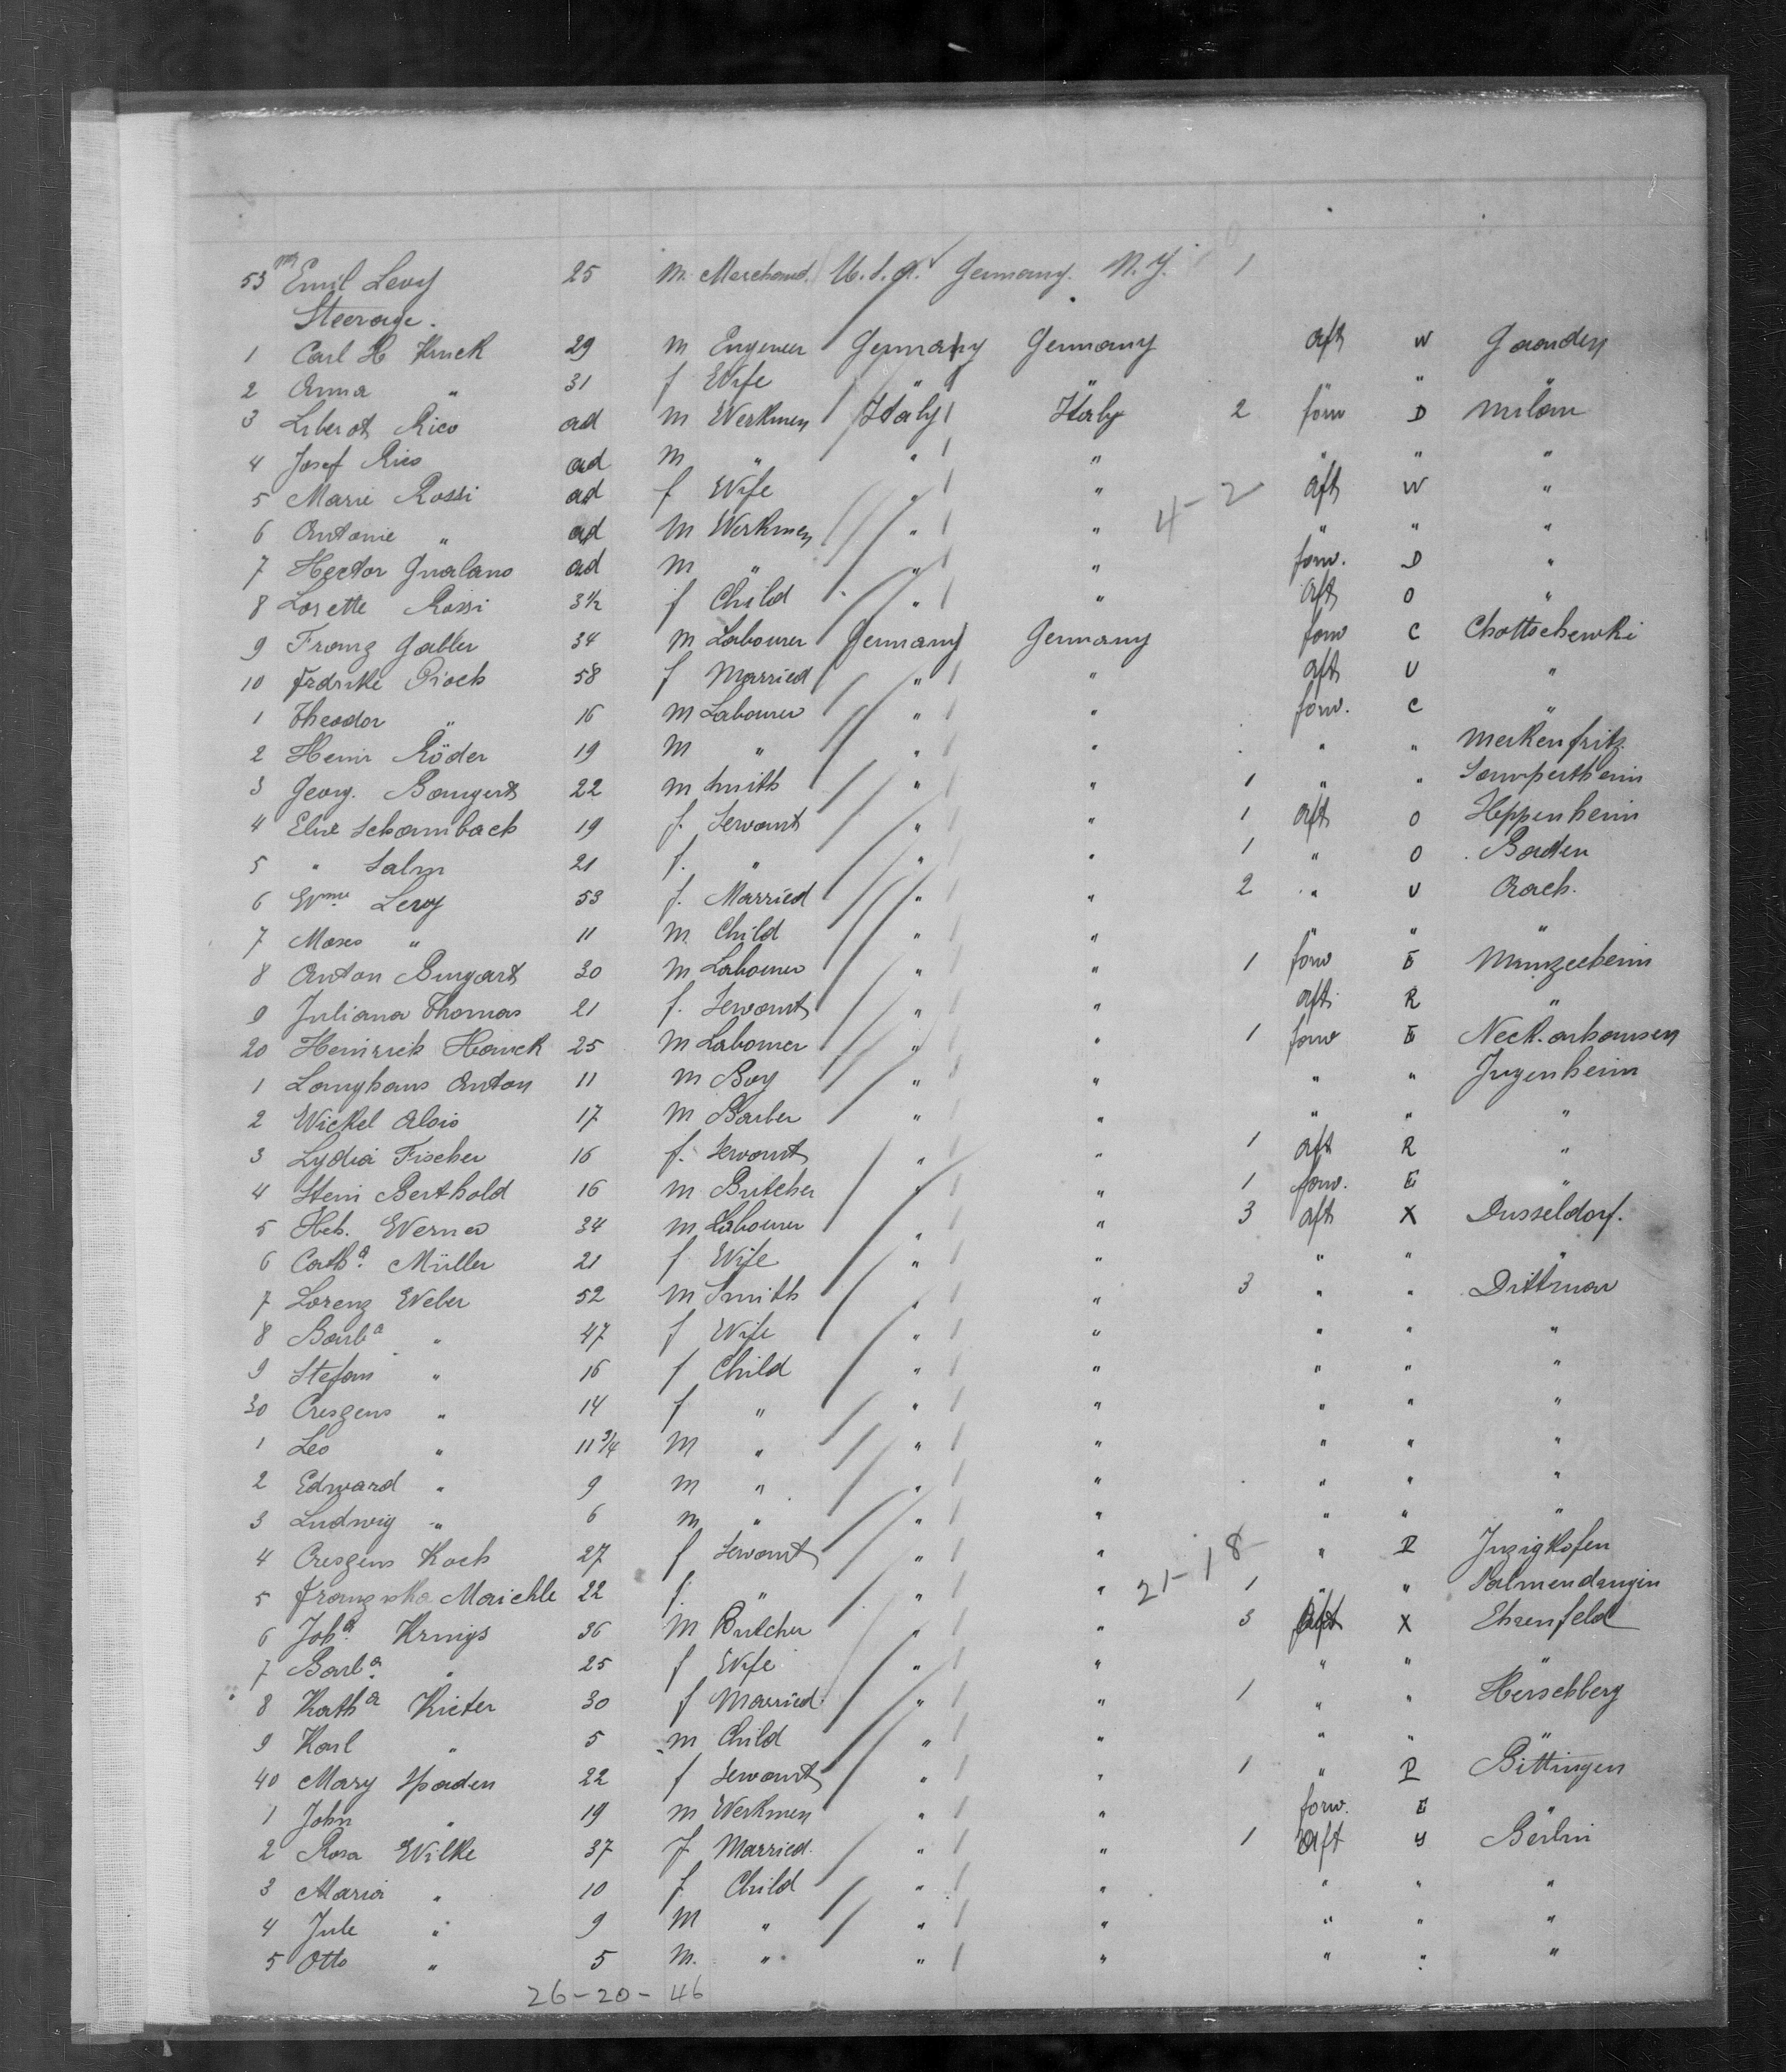 53 Mr Emil Levy 25 m. Marchand. U.S.A. Germany. N.Y. 1
Steerage.
1 Carl H Kruck 29 m Engeneer Germany Germany aft W Gaarden
2 Anna " 31 f Wife " " " "
3 Liberat Rico ad m Werkmen Italy Italy 2 forw D Milan
4 Josef Rico ad m " " " " " "
5 Marie Rossi ad f Wife " " aft W "
6 Antonie " ad m Werkmen " " " " "
4-2
7 Hector Gualano ad m " " " forw. D "
8 Lorette Rossi 3 1/2 f Child " " aft O "
9 Franz Gabler 34 m Labourer Germany Germany forw C Chottschewki
10 Frdrike Pioch 58 f Married " " aft U "
1 Theodor " 16 m Labourer " " forw. C "
2 Heinr Röder 19 m " " " " " Merkenfritz
3 Georg. Bamgert 22 m Smith " " 1 " " Lampertheim
4 Elise Schambach 19 f. Servant " " 1 aft O Heppenheim
5 " Salm 21 f. " " " 1 " O Baden
6 Wme Levy 53 f. Married " " 2 " U Aach.
7 Moses " 11 m. Child " " " " "
8 Anton Bungart 30 m Labourer " " 1 forw E Munzeeheim
9 Juliana Thomas 21 f. Servant " " aft R "
20 Heinrich Hauck 25 m Labourer " " 1 forw E Neckarhausen
1 Langhans Anton 11 m Boy " " " " Jugenheim
2 Wickel Alois 17 m Barber " " " " "
3 Lydia Fischer 16 f. Servant " " 1 aft R "
4 Stein Berthold 16 m Butcher " " 1 forw. E "
5 Hch. Werner 34 m Labourer " " 3 aft X Dusseldorf.
6 Catha. Müller 21 f Wife " " " " "
7 Lorenz Weber 52 m Smith " " 3 " " Dittmar
8 Barba " 47 f Wife " " " " "
9 Stefan " 16 f Child " " " " "
30 Creszens " 14 f " " " " " "
1 Leo " 11 3/4 m " " " " " "
2 Edward " 9 m " " " " " "
3 Ludwig " 6 m " " " " " "
4 Creszens Koch 27 f Servant " " " P Inzigkofen
21-18
5 Franziska Maichle 22 f. " " " 1 " " Salmendingin
6 Joha. Krings 36 m Butcher " " 3 aft X Ehrenfeld
7 Barba. " 25 f Wife " " " " "
8 Katha Kieter 30 f Married " " 1 " " Herschberg
9 Karl " 5 m Child " " " " "
40 Mary Spaden 22 f Servant " " 1 " P Bittingen
1 John " 19 m Werkmen " " forw. E "
2 Rosa Wilke 37 f Married. " " 1 aft Y Berlin
3 Maria " 10 f Child " " " " "
4 Jule " 9 m " " " " " "
5 Otto " 5 m. " " " " " "
26-20-46